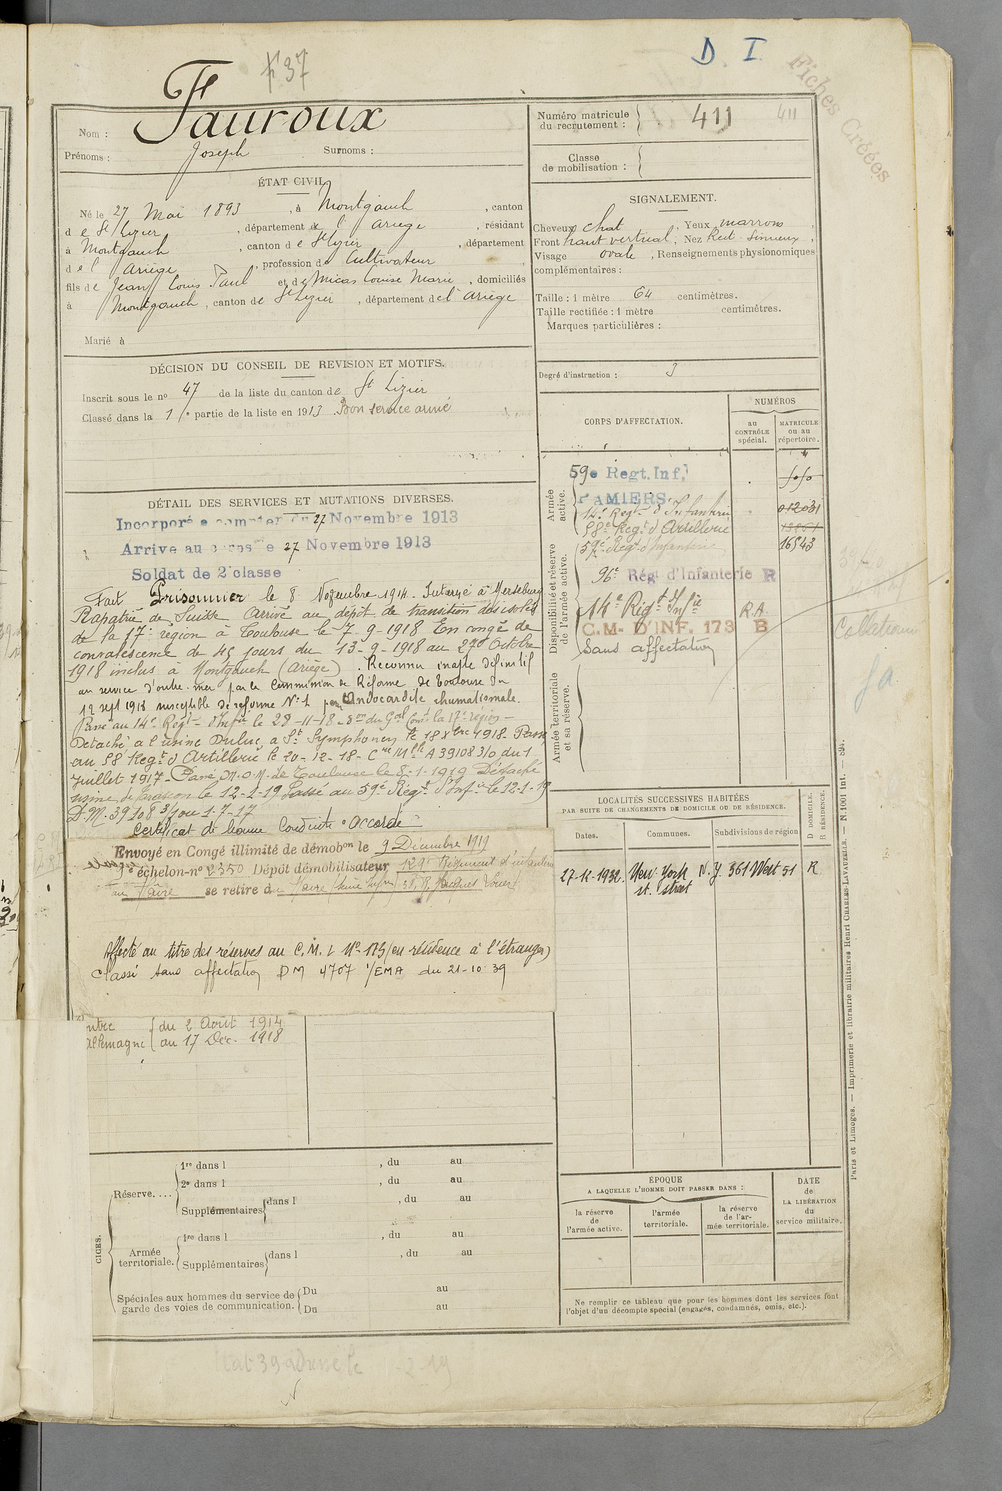 F 37
D. I.
Fiches Créées
Nom : Fauroux
Prénoms : Joseph Surnoms :
ÉTAT CIVIL
Né le 27 Mai 1893 , à Montgauch , canton
d e St Lizier , département de l' Ariège , résidant
à Montgauch , canton d e St Lizier , département
d e l' Ariège , profession de Cultivateur
fils de Jean Louis Paul et de Micas Louise Marie , domiciliés
à Montgauch , canton de St Lizier , département de l' Ariège
Marié à
DÉCISION DU CONSEIL DE REVISION ET MOTIFS.
Inscrit sous le no 47 de la liste du canton de St Lizier
Classé dans la 1re partie de la liste en 1913 Bon service armé
DÉTAIL DES SERVICES ET MUTATIONS DIVERSES.
Incorporé à compter du 27 Novembre 1913
Arrivé au corps le 27 Novembre 1913
Soldat de 2e classe
Fait Prisonnier le 8 Novembre 1914. Interné à Merseburg
Rapatrié de Suisse arrivé au dépôt de transition des isolés
de la 17e région à Toulouse le 7-9-1918 En congé de
convalescence de 45 jours du 13-9-1918 au 27 Octobre
1918 inclus à Montgauch (Ariège). Reconnu inapte définitif
au service d'outre-mer par la Commission de Réforme de Toulouse du
12 sept 1918 susceptible de réforme No 1 pour Endocardite rhumatismale.
Passé au 14e Regt d'Infie le 28-11-18 de la 17e région -
Détaché à l'usine Duluc, à St Symphorien le 18 Xbre 1918. Passé
au 58 Regt d'Artillerie le 20-12-18- Cre Mlle A 39108 3/0 du 1
Juillet 1917 - de Toulouse le 8-1-1919 Détaché
usine de le 12-2-19 Passé au 59e Regt d'Infie le 12-1-19
D.M. 39108 3/0 du 1-7-17
Certificat de bonne Conduite "Accordé"
Envoyé en Congé illimité de démobon le 9 Décembre 1919
échelon-no 2350 Dépôt démobilisateur 129e Régiment d'infanterie
au Havre se retire à Havre (Seine Infre)
Affecté au titre des réserves au C.M.I No 173 (en résidence à l'étranger)
Classé sans affectation DM 4707 1/EMA du 21-10-39
ntre { du 2 Août 1914
allemagne { au 17 Déc. 1918
CICES.
Réserve.... 1re dans l , du au
2e dans l , du au
Supplémentaires dans l , du au
Armée territoriale. 1re dans l , du au
Supplémentaires dans l , du au
Spéciales aux hommes du service de Du au
garde des voies de communication. Du au
Numéro matricule du recrutement : 411 411
Classe de mobilisation :
SIGNALEMENT.
Cheveux chat , Yeux marrons ,
Front haut vertical , Nez Rect. Sinueux ,
Visage ovale , Renseignements physionomiques
complémentaires :
Taille : 1 mètre 64 centimètres.
Taille rectifiée : 1 mètre centimètres.
Marques particulières :
Degré d'instruction : 3
CORPS D'AFFECTATION.
NUMÉROS
au CONTRÔLE spécial.
MATRICULE ou au répertoire.
Armée active.
59e Regt. Inf.
PAMIERS
14e Regt d'Infanterie 012031
58e Regt d'Artillerie
59e Regt d'Infanterie 16543
Disponibilité et réserve de l'armée active.
96e Rég. d'Infanterie R
14e Regt d'Infie R.A.
C.M. D'INF. 173 B
Sans affectation
Armée territoriale et sa réserve.
LOCALITÉS SUCCESSIVES HABITÉES
PAR SUITE DE CHANGEMENTS DE DOMICILE OU DE RÉSIDENCE.
Dates. Communes. Subdivisions de région D DOMICILE. R RÉSIDENCE.
27-12-1932. New-York N.Y. 361 West 51 R
st. street
ÉPOQUE
A LAQUELLE L'HOMME DOIT PASSER DANS :
DATE DE LA LIBÉRATION du service militaire.
la réserve de l'armée active. l'armée territoriale. la réserve de l'armée territoriale.
Ne remplir ce tableau que pour les hommes dont les services font
l'objet d'un décompte spécial (engagés, condamnés, omis, etc.).
Paris et Limoges. — Imprimerie et librairie militaires Henri CHARLES-LAVAUZELLE. — N. 1001 int.